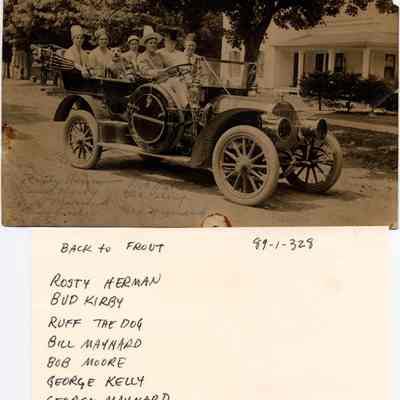 BACK to FROUT 89-1-328
ROSTY HERMAN
BUD KIRBY
RUFF THE DOG
BILL MAYNARD
BOB MOORE
GEORGE KELLY
GEORGE MAYNARD